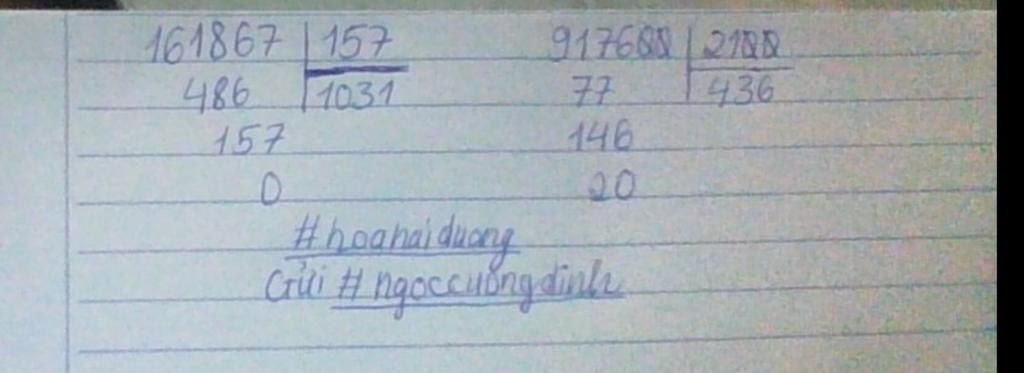 161867 157 917600 2100
486 1031 77 436
157 146
0 20
#hoahaiduong
Gửi #ngoccuongdinh